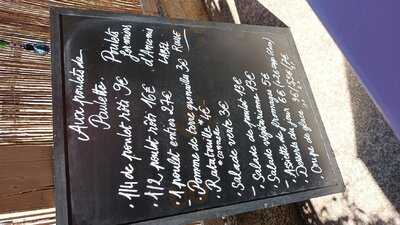 Aux poulets de
Paulette.
Poulets
fermiers
d'Ancenis
LABEL
ROUGE
1/4 de poulet rôti 9€
1/2 poulet rôti 16€
1 poulet entier 27€
- Pomme de terre grenaille 3€
- Ratatouille 4€
Salade verte 3€
- Salade de poulet 13€
- Salade végétarienne
- Assiette de fromages 6€
- Desserts du jour
- Coupe de glace